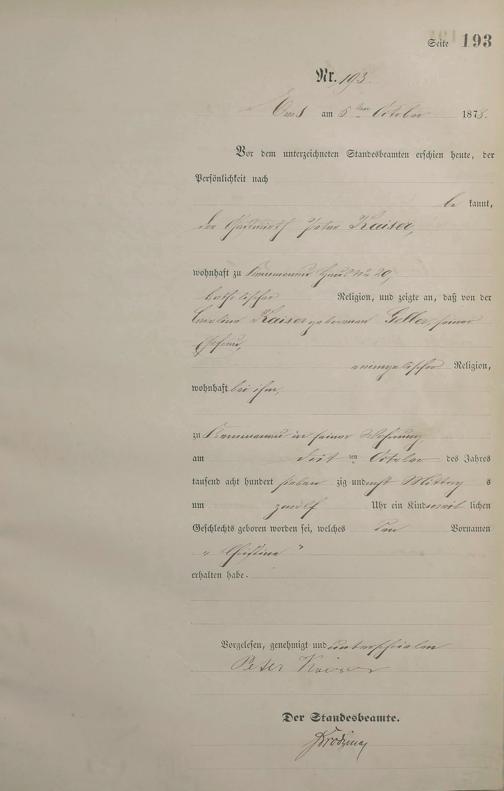 Seite 193
Nr. 193.
Ems am 5ten October 1878.
Vor dem unterzeichneten Standesbeamten erschien heute, der
Persönlichkeit nach
be kannt,
der Gastwirth Peter Kaiser,
wohnhaft zu Haus No 20,
katholischer Religion, und zeigte an, daß von der
Caroline Kaiser geborenen Geller, seiner
Ehefrau,
evangelischer Religion,
wohnhaft bei ihm,
zu in seiner Wohnung
am ten October des Jahres
tausend acht hundert sieben zig und acht Mittag s
um zwölf Uhr ein Kind weib lichen
Geschlechts geboren worden sei, welches den Vornamen
„ Christine "
erhalten habe.
Vorgelesen, genehmigt und unterschrieben
Peter Kaiser
Der Standesbeamte.